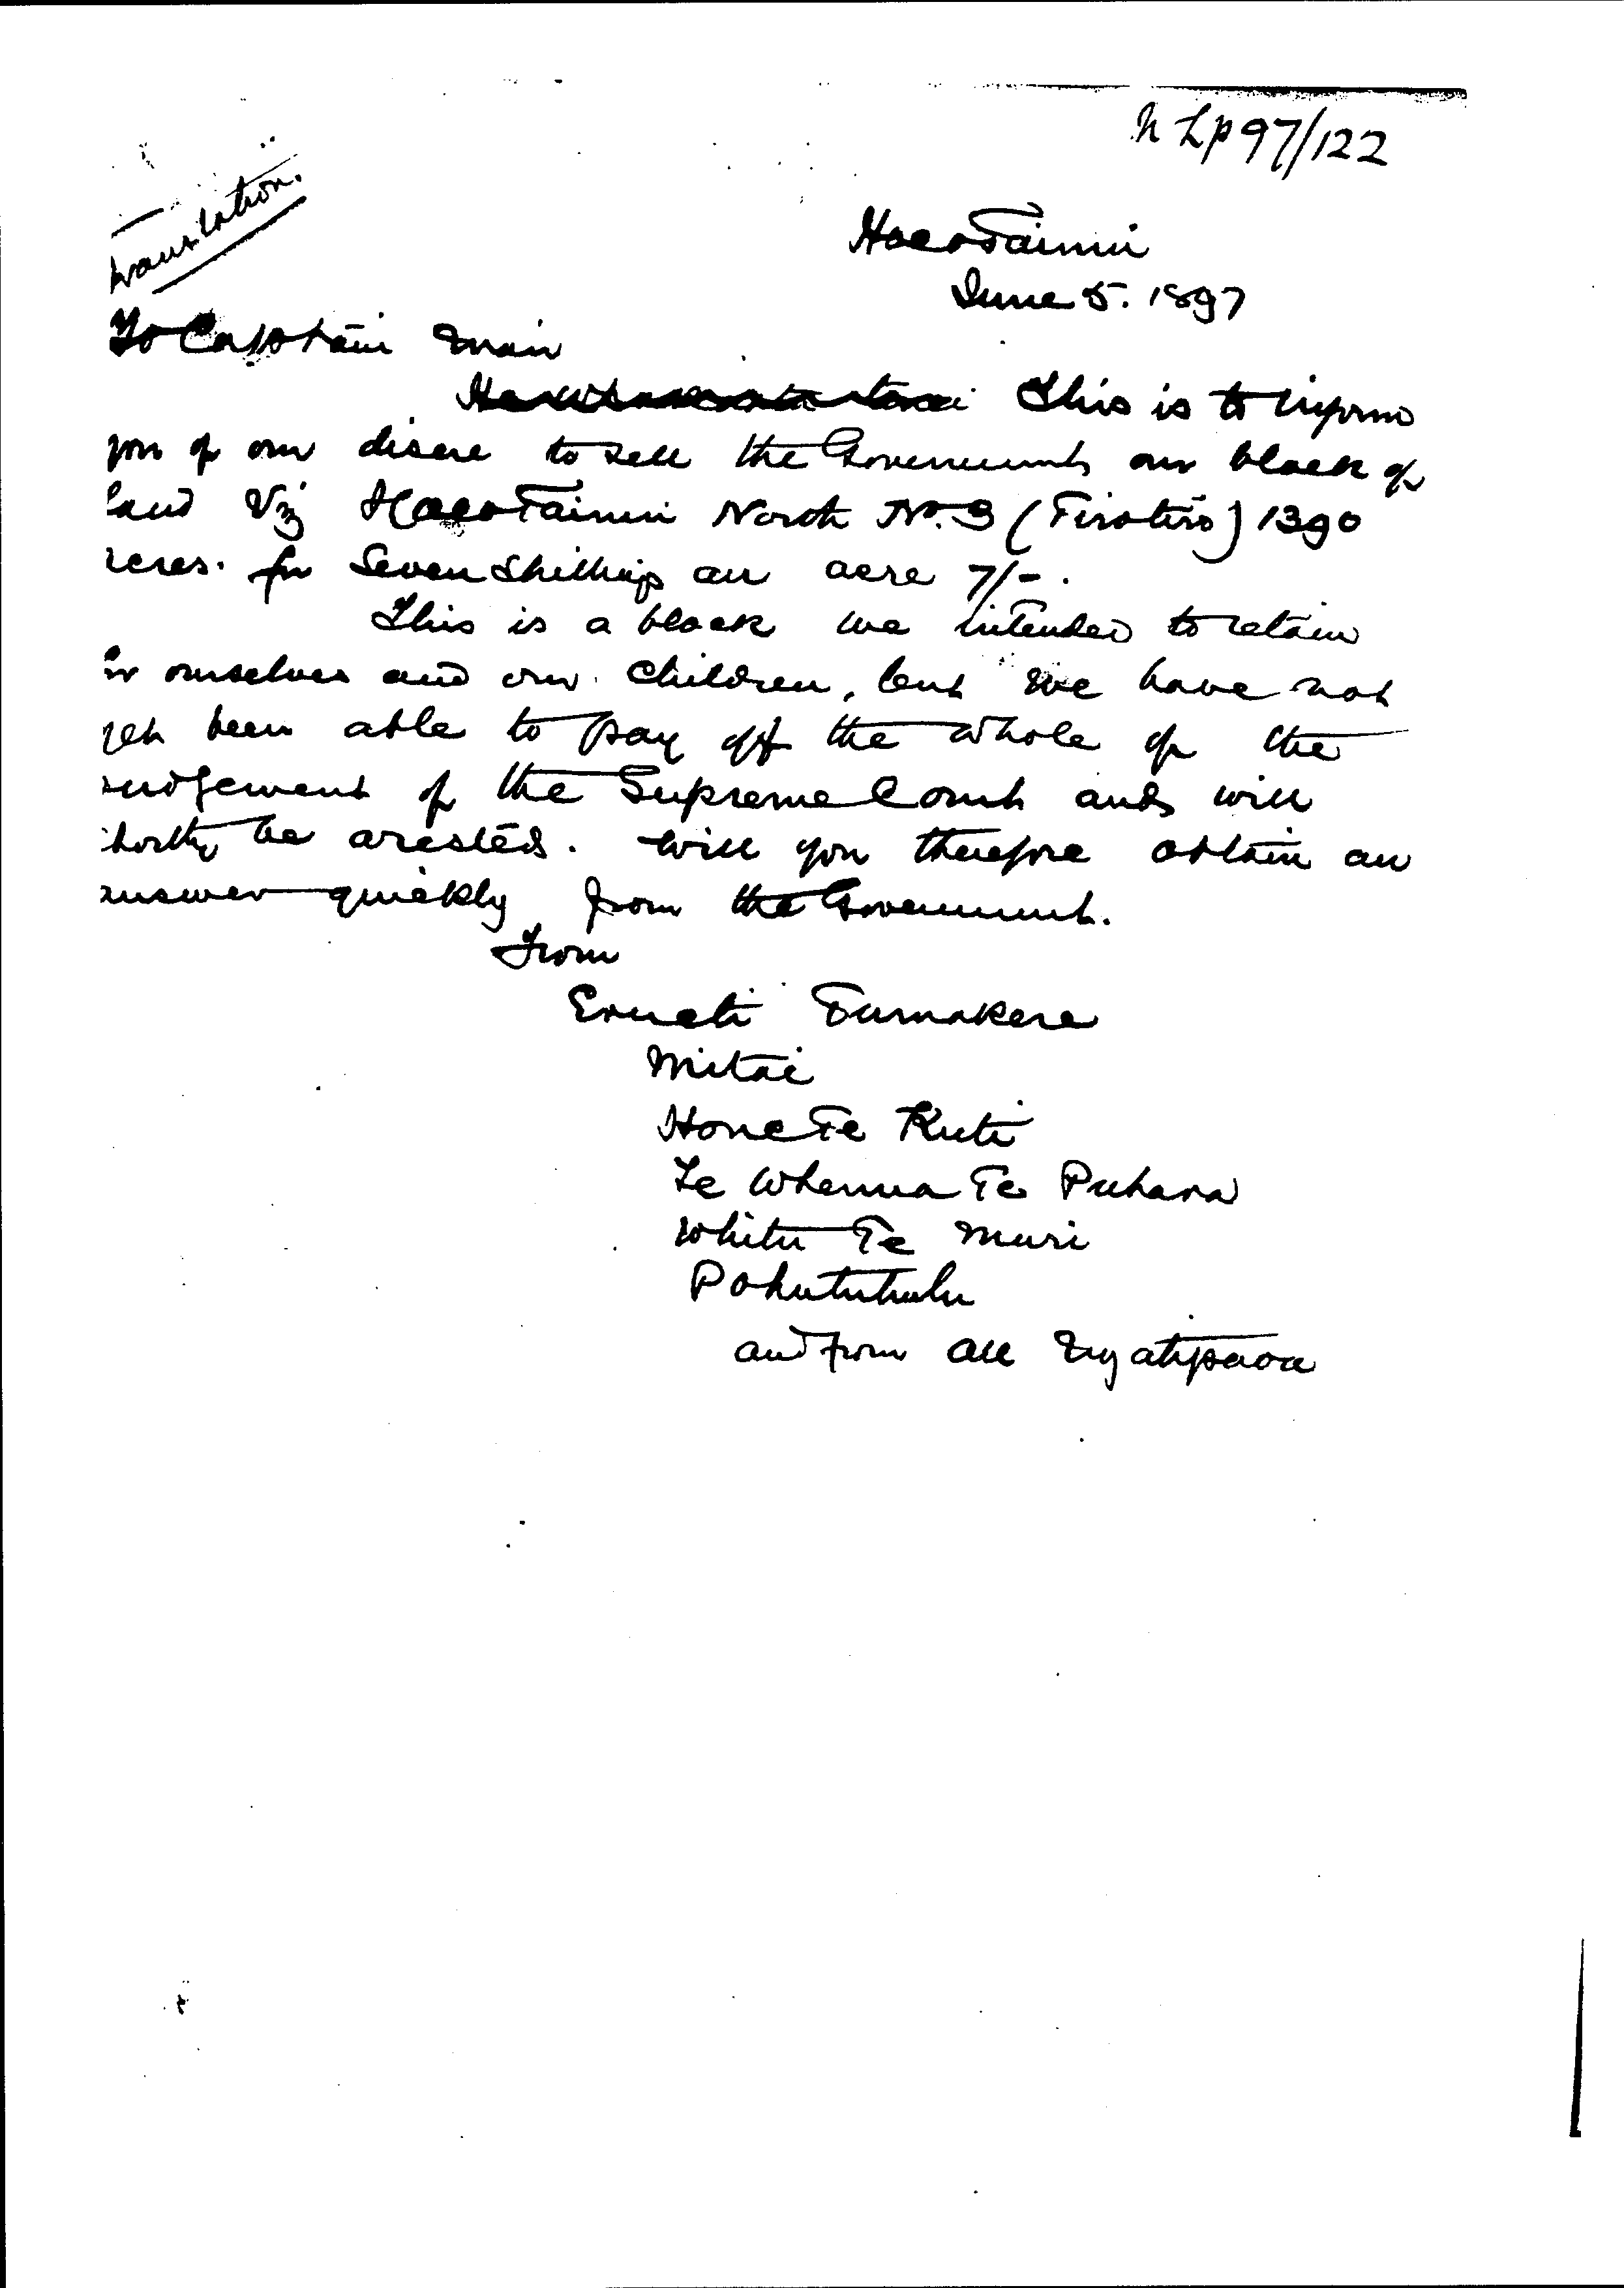 N L P 97/122
Translation.
Haeo Tainui
June 5. 1897
To Captain Mair
This is to inform
you of our disere to sell the Government our block of
land Viz Haeo Tainui North No. 3 (Tirotiro) 1390
acres. for Seven Shillings an acre 7/-.
This is a block we intended to retain
for ourselves and our children, but we have not
yet been able to pay off the whole of the
judgement of the Supreme Court and will
shortly be arested. Will you therefore obtain an
answer quickly from the Government.
From
Erueti Tumakere
Mitai
Hone Te Ruti
Te Whenua Te Puhara
Whitu Te Muri
Pohutuhutu
and from all Ngatipaoa